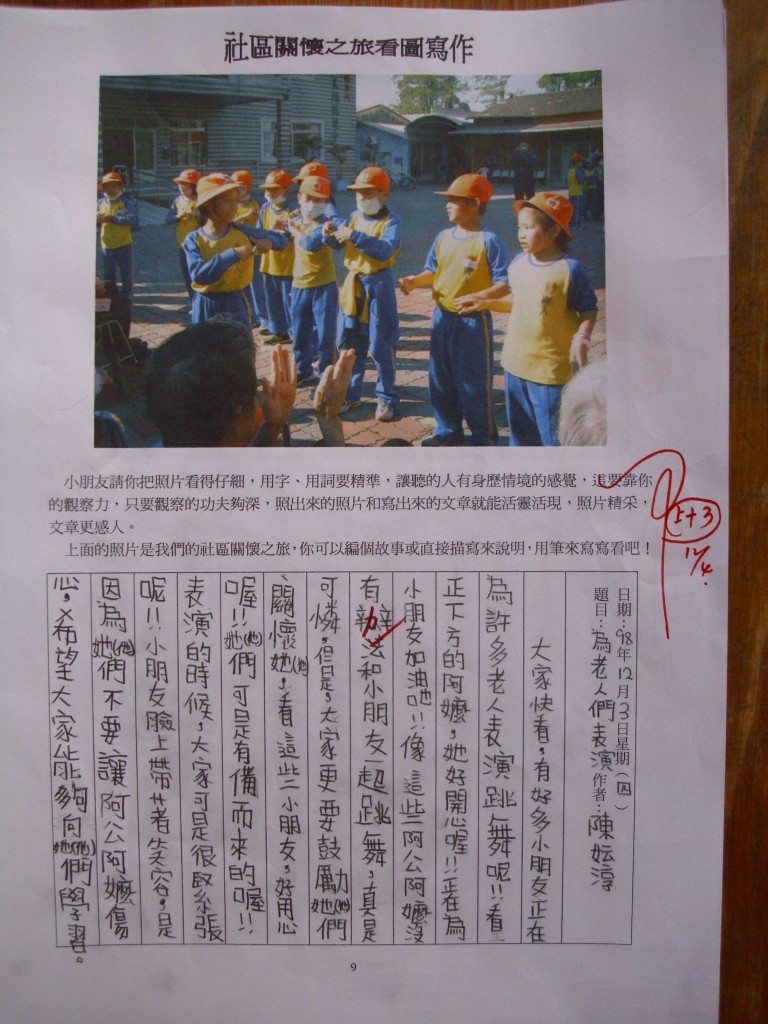 社區關懷之旅看圖寫作
小朋友請你把照片看得仔細，用字、用詞要精準，讓聽的人有身歷情境的感覺，這要靠你
的觀察力，只要觀察的功夫夠深，照出來的照片和寫出來的文章就能活靈活現，照片精采，
文章更感人。
上面的照片是我們的社區關懷之旅，你可以編個故事或直接描寫來說明，用筆來寫寫看吧！
5+3
12/4
日期：98年12月3日星期（四）
題目：為老人們表演 作者：陳妘淳
大家快看，有好多小朋友正在
為許多老人表演跳舞呢!!看
正下方的阿嬤，她好開心喔!!正在為
小朋友加油吔!!像這些阿公阿嬤沒
有辦法和小朋友一起跳舞，真是
可憐，但是，大家更要鼓勵她(他)們
關懷她(他)，看這些小朋友，好用心
喔!!她(他)們可是有備而來的喔!!
表演的時候，大家可是很緊張
呢!!小朋友臉上帶著笑容，是
因為她(他)們不要讓阿公阿嬤傷
心，希望大家能夠向她(他)們學習。
9